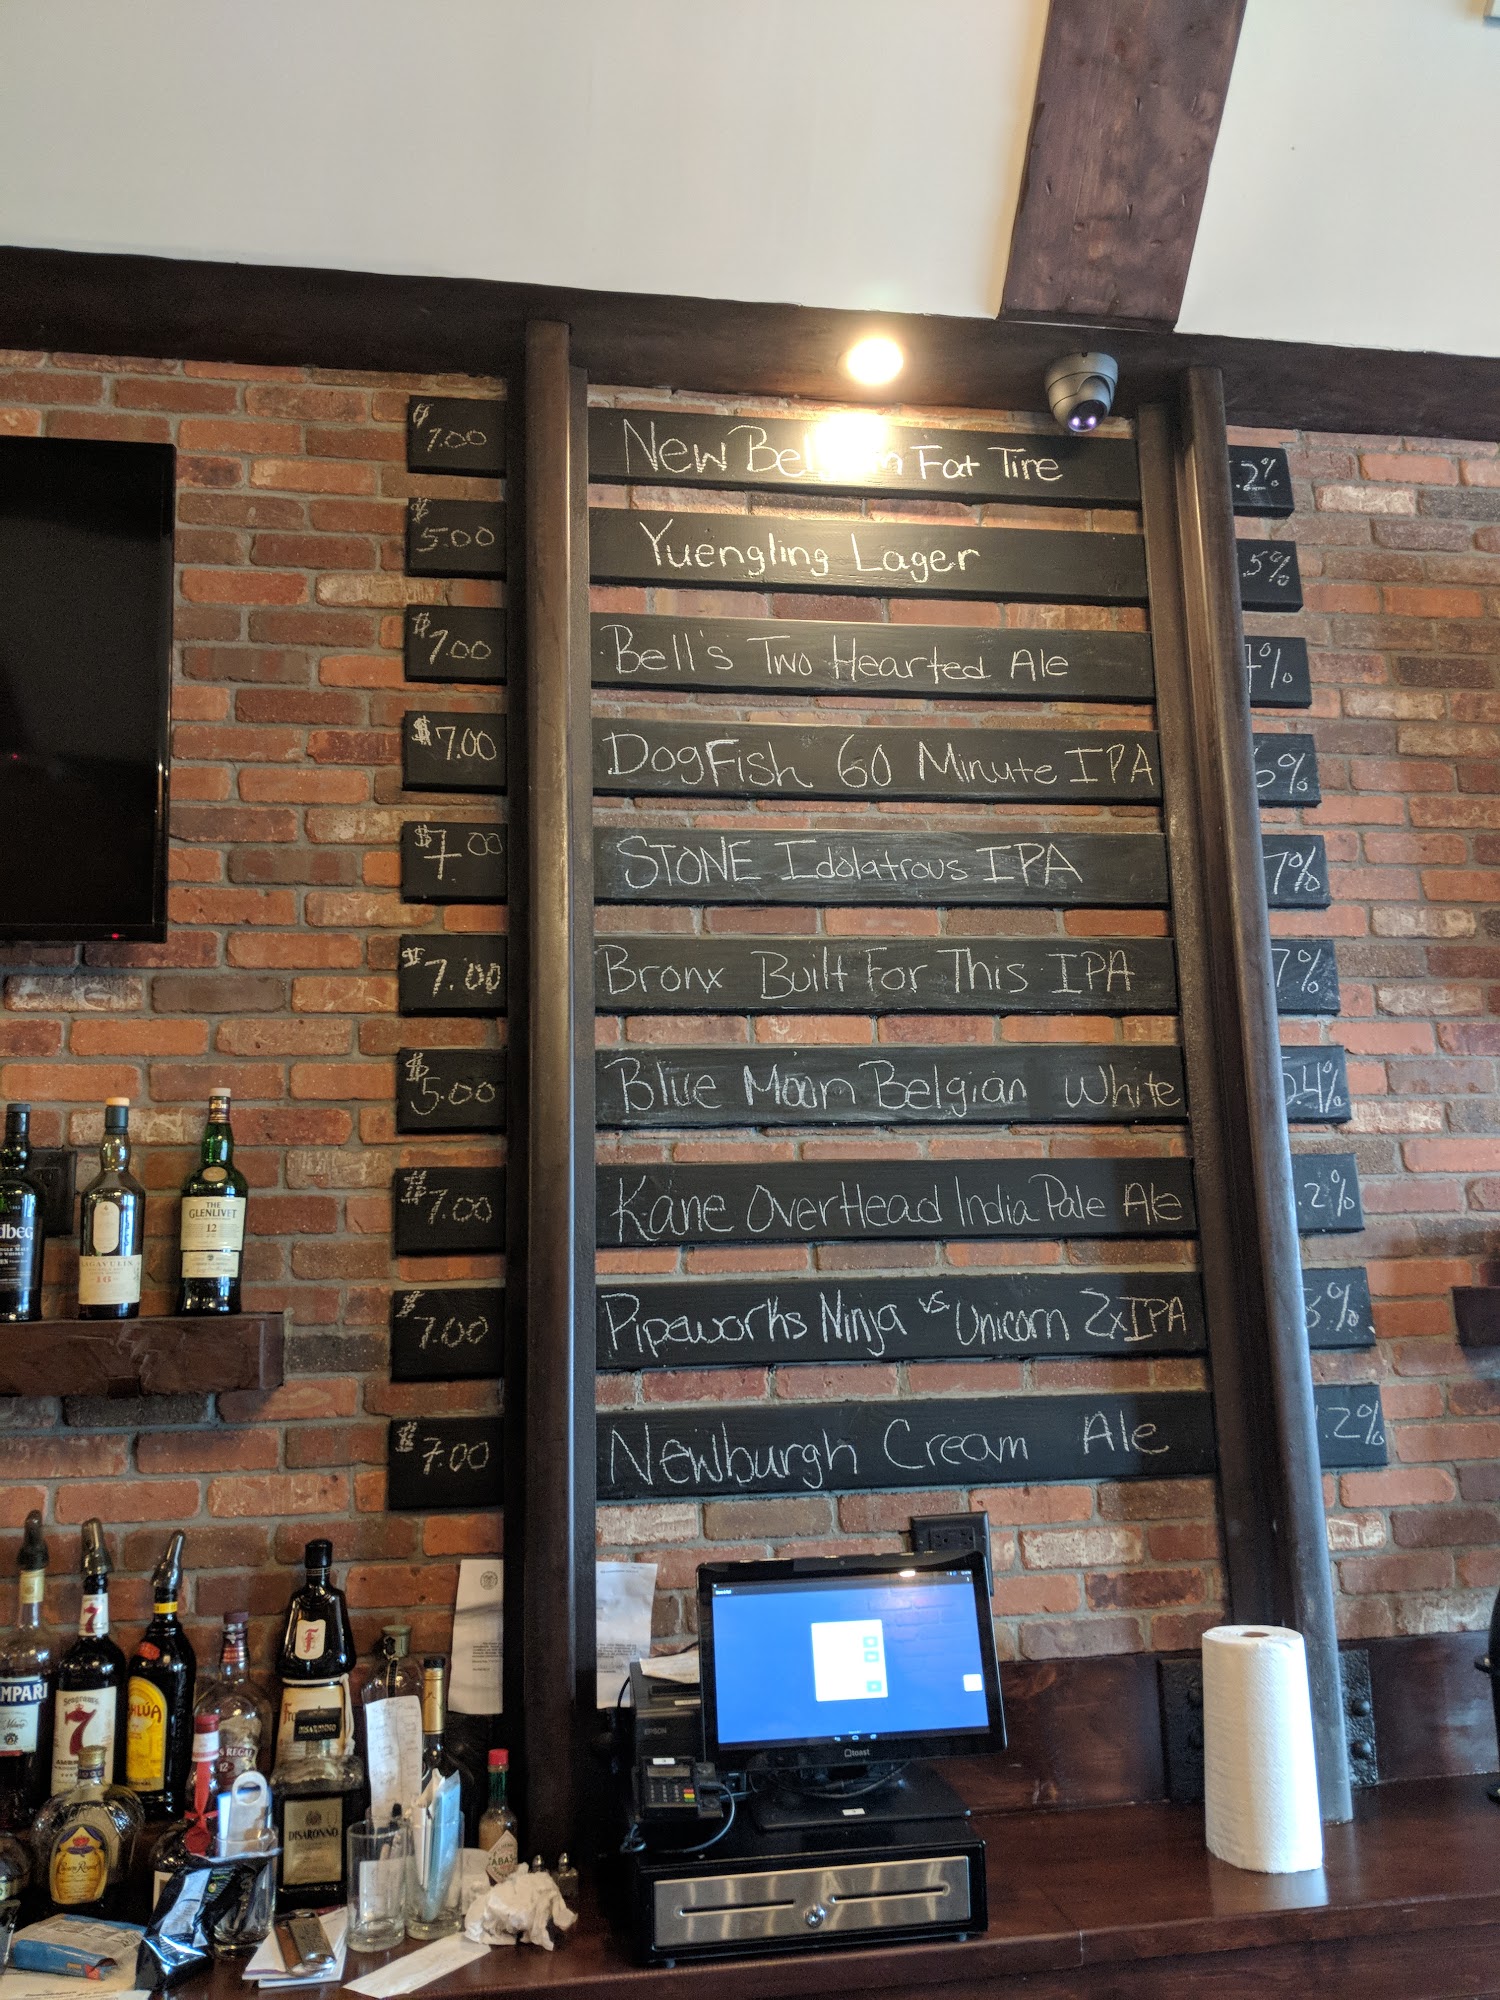 $7.00 New Belgium Fat Tire .2%
$5.00 Yuengling Lager .5%
$7.00 Bell's Two Hearted Ale 7%
$7.00 DogFish 60 Minute IPA 6%
$7.00 STONE Idolatrous IPA 7%
$7.00 Bronx Built For This IPA 7%
$5.00 Blue Moon Belgian White 5.4%
$7.00 Kane OverHead India Pale Ale .2%
$7.00 Pipeworks Ninja vs. Unicorn 2xIPA 8%
$7.00 Newburgh Cream Ale .2%
dbeg
LAGAVULIN
16
THE
GLENLIVET
12
MPARI
7
Seagram's
7
HLÚA
F
S REGAL
12
DISARONNO
DISARONNO
Crown Royal
ABAS
EPSON
toast